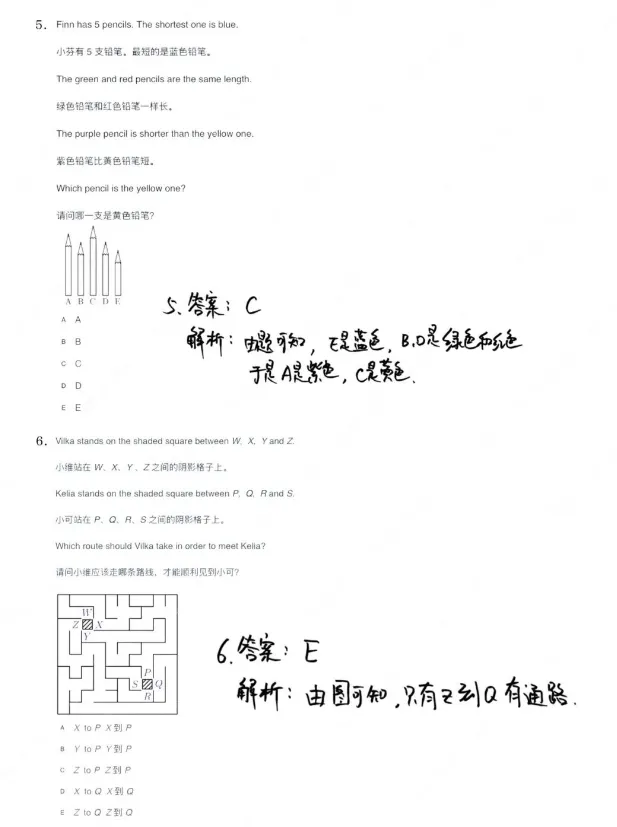 5. Finn has 5 pencils. The shortest one is blue.
小芬有 5 支铅笔。最短的是蓝色铅笔。
The green and red pencils are the same length.
绿色铅笔和红色铅笔一样长。
The purple pencil is shorter than the yellow one.
紫色铅笔比黄色铅笔短。
Which pencil is the yellow one?
请问哪一支是黄色铅笔?
A B C D E
A A
B B
C C
D D
E E
5、答案：C
解析：由题可知，E是蓝色，B、D是绿色和红色
于是A是紫色，C是黄色.
6. Vilka stands on the shaded square between W, X, Y and Z.
小维站在 W、X、Y、Z 之间的阴影格子上。
Kelia stands on the shaded square between P, Q, R and S.
小可站在 P、Q、R、S 之间的阴影格子上。
Which route should Vilka take in order to meet Kelia?
请问小维应该走哪条路线，才能顺利见到小可?
W
Z X
Y
P
S Q
R
A X to P X到 P
B Y to P Y到 P
C Z to P Z到 P
D X to Q X到 Q
E Z to Q Z到 Q
6.答案：E
解析：由图可知,只有Z到Q有通路.